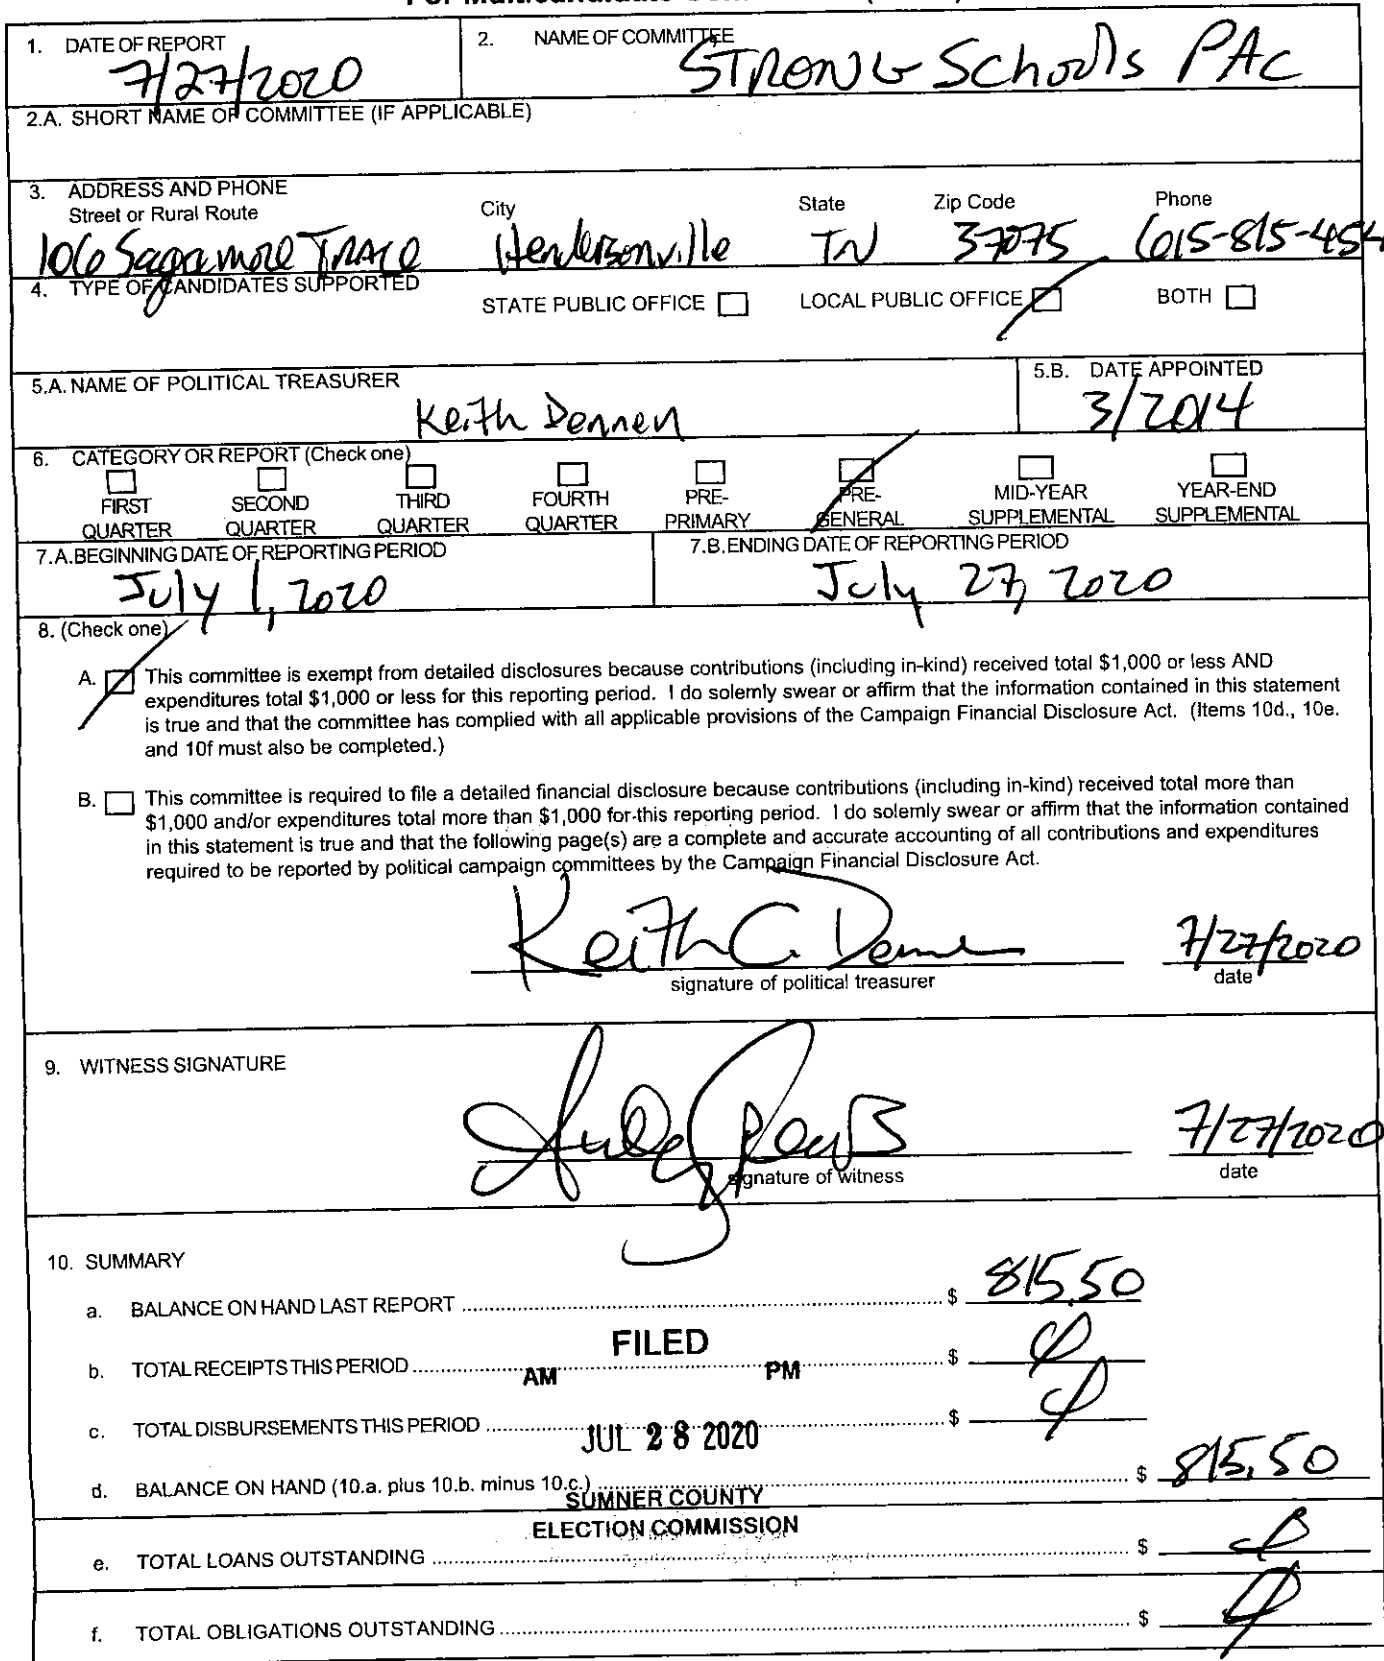 1. DATE OF REPORT
7/27/2020
2. NAME OF COMMITTEE
STRONG Schools PAC
2.A. SHORT NAME OF COMMITTEE (IF APPLICABLE)
3. ADDRESS AND PHONE
Street or Rural Route City State Zip Code Phone
106 Sagamore Trace Hendersonville TN 37075 615-815-454
4. TYPE OF CANDIDATES SUPPORTED
STATE PUBLIC OFFICE LOCAL PUBLIC OFFICE BOTH
5.A. NAME OF POLITICAL TREASURER
Keith Dennen
5.B. DATE APPOINTED
3/2014
6. CATEGORY OR REPORT (Check one)
FIRST QUARTER
SECOND QUARTER
THIRD QUARTER
FOURTH QUARTER
PRE-PRIMARY
PRE-GENERAL
MID-YEAR SUPPLEMENTAL
YEAR-END SUPPLEMENTAL
7.A. BEGINNING DATE OF REPORTING PERIOD
July 1, 2020
7.B. ENDING DATE OF REPORTING PERIOD
July 27, 2020
8. (Check one)
A. This committee is exempt from detailed disclosures because contributions (including in-kind) received total $1,000 or less AND
expenditures total $1,000 or less for this reporting period. I do solemly swear or affirm that the information contained in this statement
is true and that the committee has complied with all applicable provisions of the Campaign Financial Disclosure Act. (Items 10d., 10e.
and 10f must also be completed.)
B. This committee is required to file a detailed financial disclosure because contributions (including in-kind) received total more than
$1,000 and/or expenditures total more than $1,000 for this reporting period. I do solemly swear or affirm that the information contained
in this statement is true and that the following page(s) are a complete and accurate accounting of all contributions and expenditures
required to be reported by political campaign committees by the Campaign Financial Disclosure Act.
Keith C. Dennen 7/27/2020
signature of political treasurer date
9. WITNESS SIGNATURE
7/27/2020
signature of witness date
10. SUMMARY
a. BALANCE ON HAND LAST REPORT $ 815.50
FILED
b. TOTAL RECEIPTS THIS PERIOD $ 0
AM PM
c. TOTAL DISBURSEMENTS THIS PERIOD $ 0
JUL 28 2020
d. BALANCE ON HAND (10.a. plus 10.b. minus 10.c.) $ 815.50
SUMNER COUNTY
ELECTION COMMISSION
e. TOTAL LOANS OUTSTANDING $ 0
f. TOTAL OBLIGATIONS OUTSTANDING $ 0